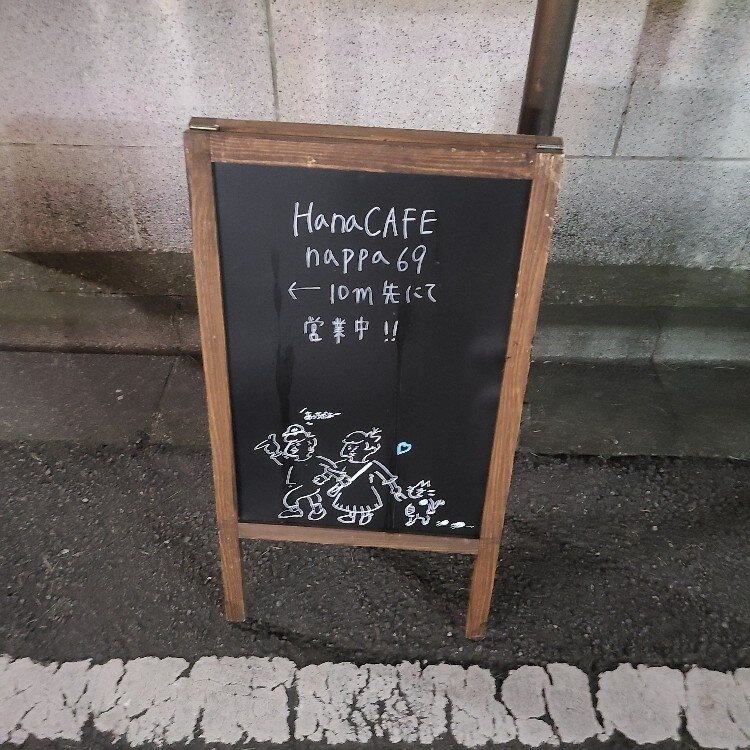 HanaCAFE
nappa69
←10m先にて
営業中!!